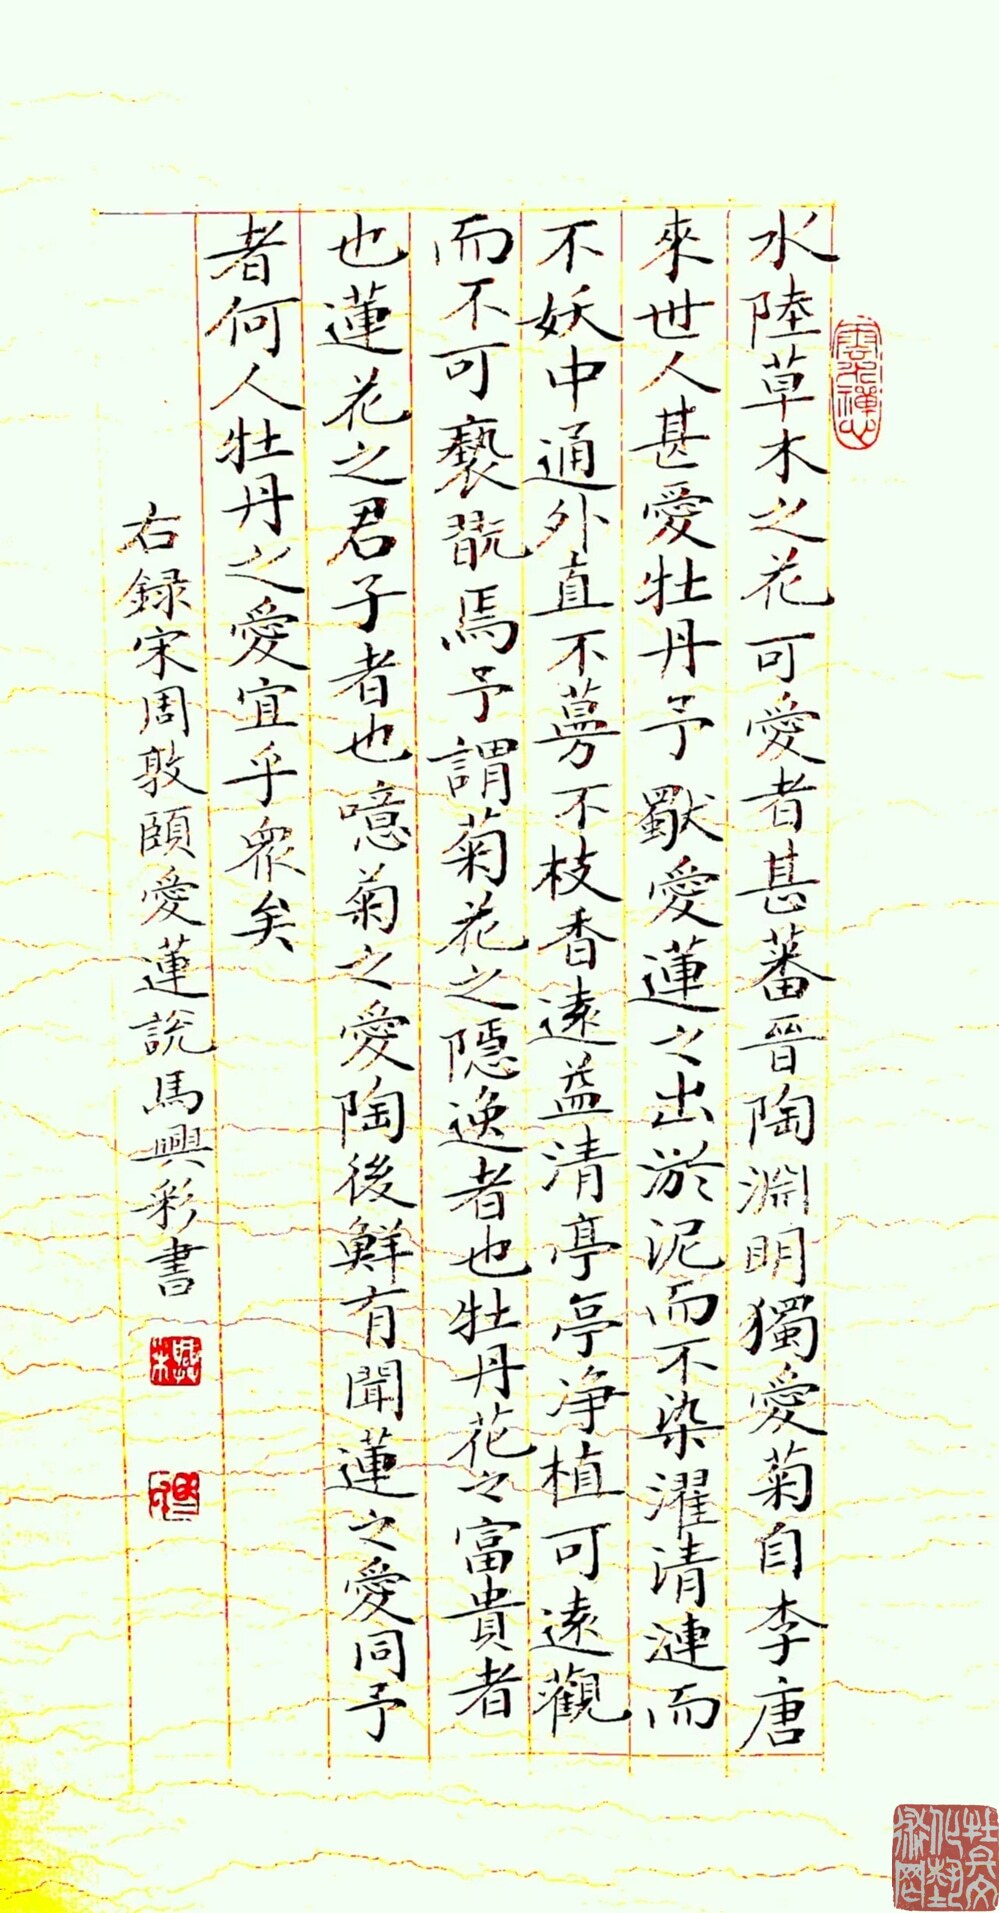 水陸草木之花可愛者甚蕃晉陶淵明獨愛菊自李唐
來世人甚愛牡丹予獸愛蓮之出淤泥而不染濯清漣而
不妖中通外直不蔓不枝香遠益清亭亭净植可遠觀
而不可褻翫焉予謂菊花之隱逸者也牡丹花之富貴者
也蓮花之君子者也噫菊之愛陶後鮮有聞蓮之愛同予
者何人牡丹之愛宜乎眾矣
右録宋周敦頤愛蓮說馬興彩書
牡丹文化藝術网